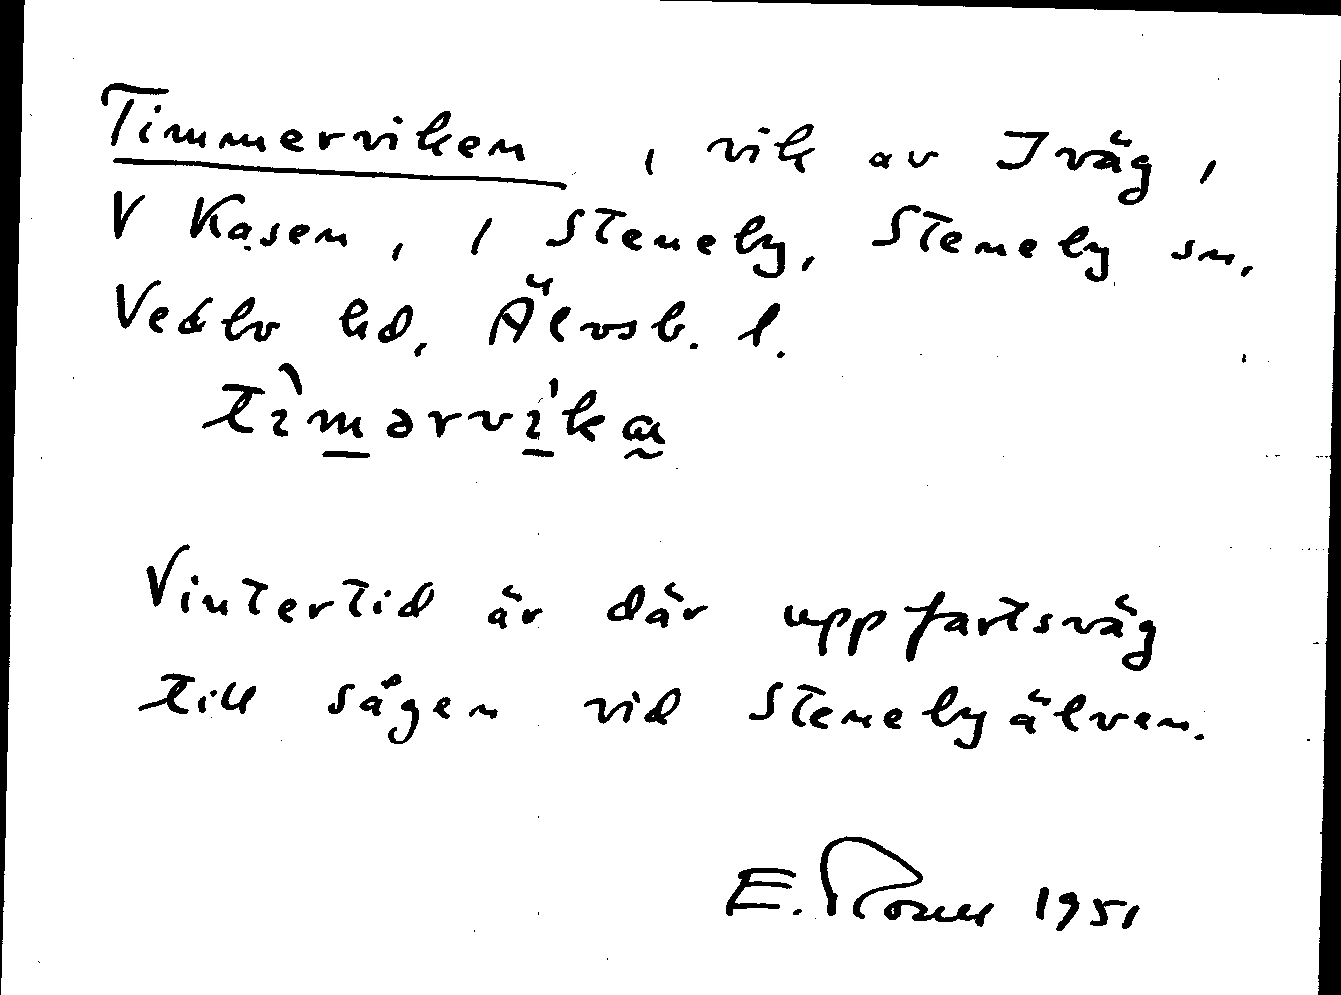 Timmerviken, vik av Iväg,
V Kasen, / Steneby, Steneby sn,
Vedbo hd, Älvsb. l.
Vintertid är där uppfartsväg
till sågen vid Stenebyälven.
E. 1951